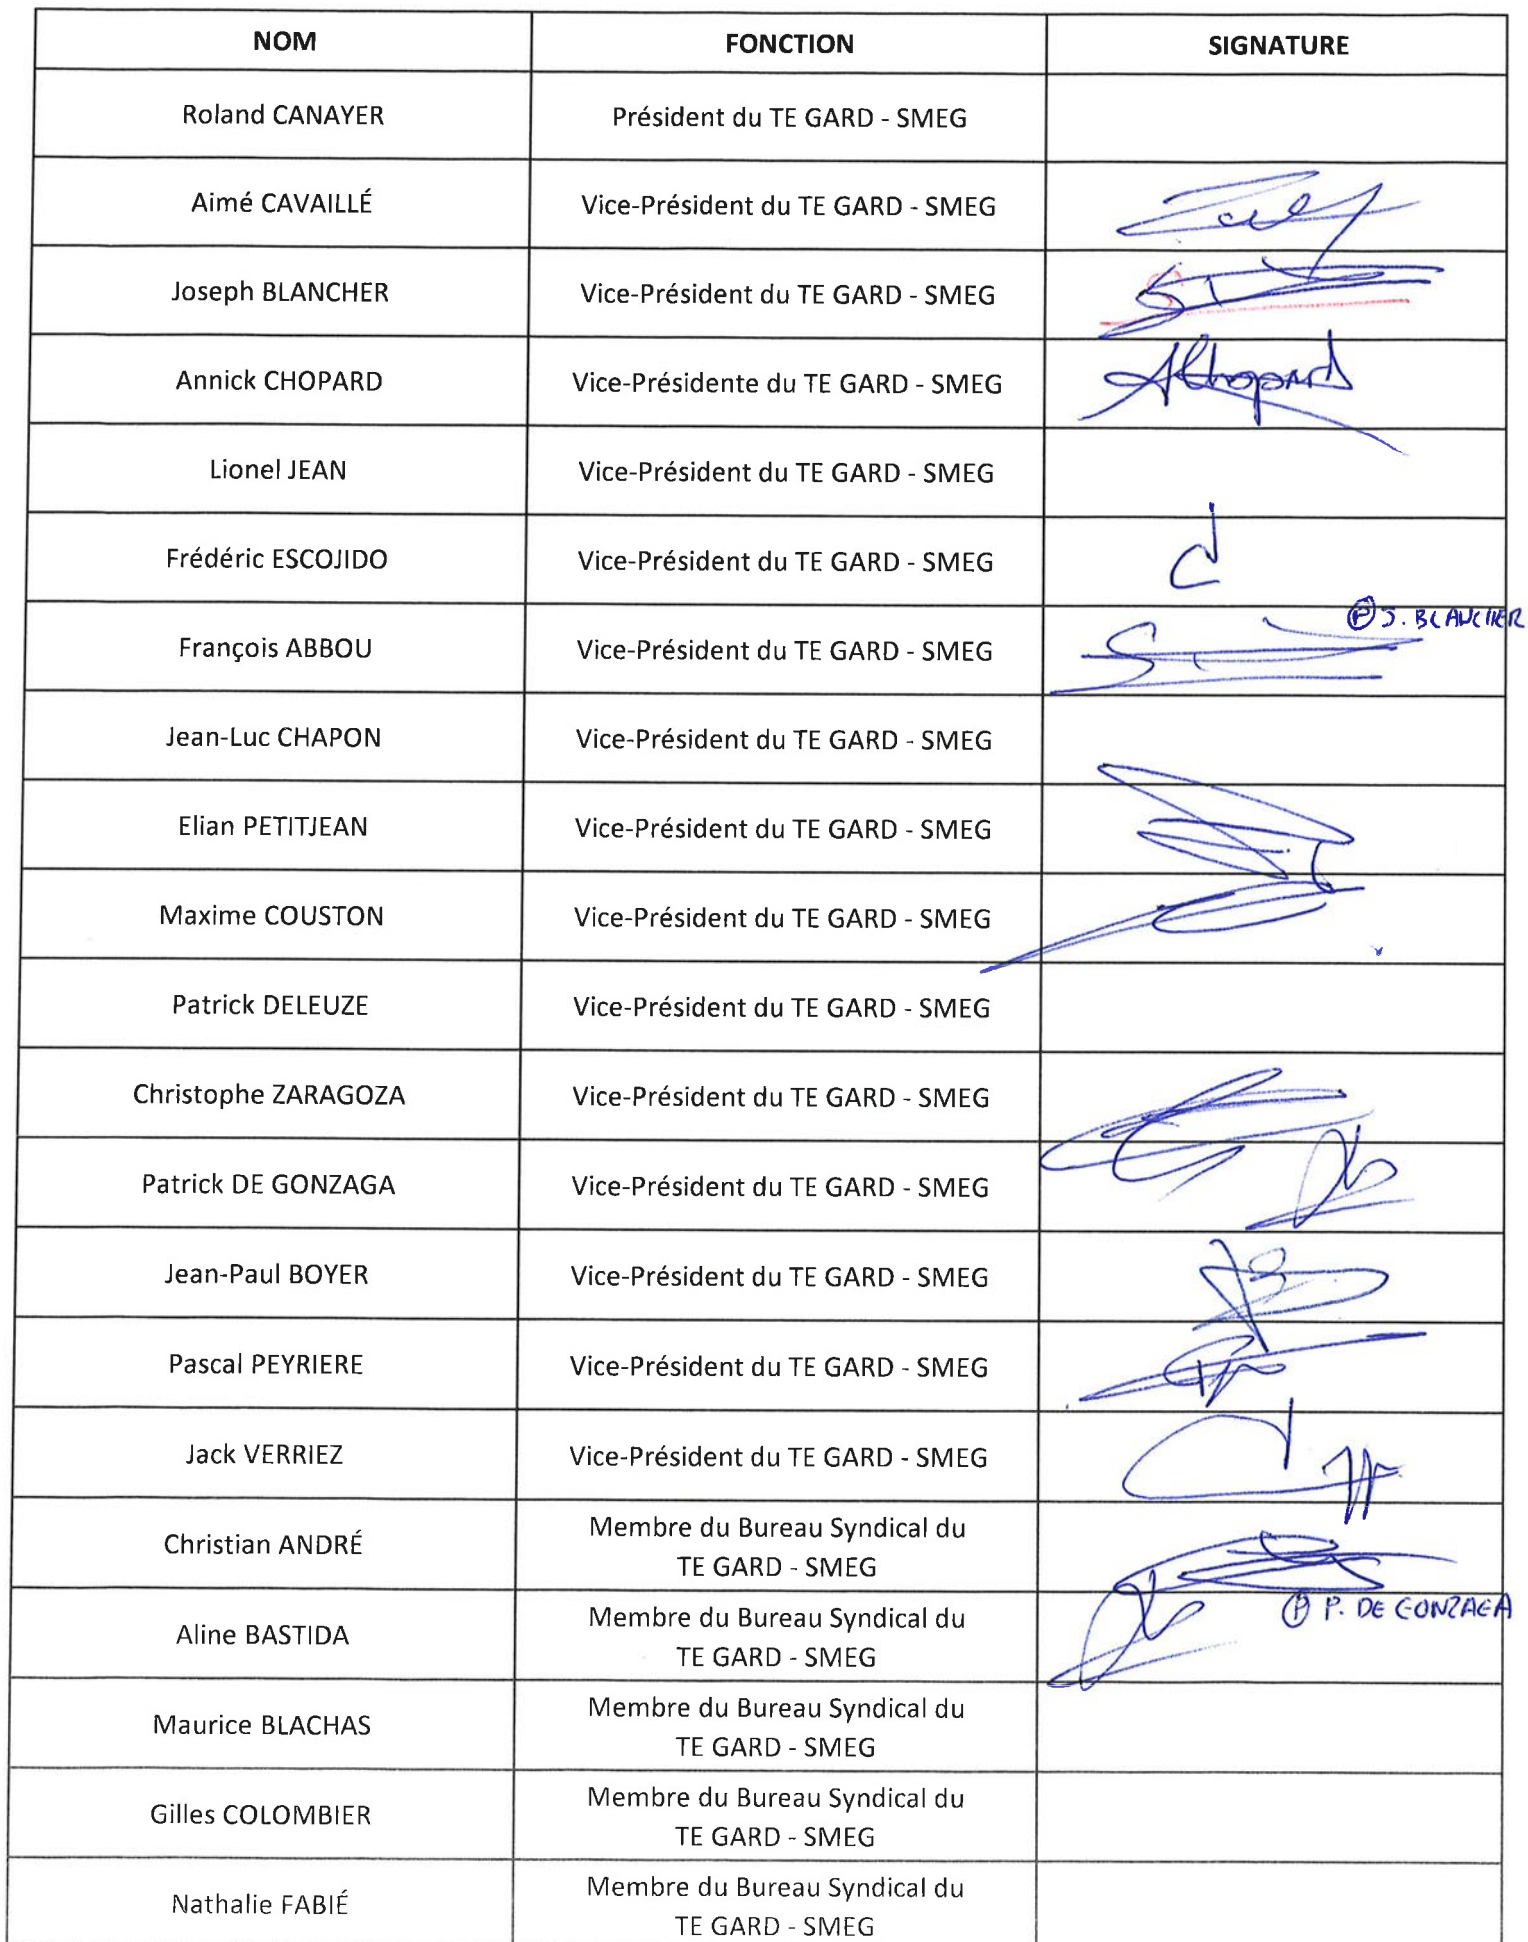 NOM FONCTION SIGNATURE
Roland CANAYER Président du TE GARD - SMEG
Aimé CAVAILLÉ Vice-Président du TE GARD - SMEG
Joseph BLANCHER Vice-Président du TE GARD - SMEG
Annick CHOPARD Vice-Présidente du TE GARD - SMEG AChopard
Lionel JEAN Vice-Président du TE GARD - SMEG
Frédéric ESCOJIDO Vice-Président du TE GARD - SMEG
Ⓟ J. BLANCHER
François ABBOU Vice-Président du TE GARD - SMEG
Jean-Luc CHAPON Vice-Président du TE GARD - SMEG
Elian PETITJEAN Vice-Président du TE GARD - SMEG
Maxime COUSTON Vice-Président du TE GARD - SMEG
Patrick DELEUZE Vice-Président du TE GARD - SMEG
Christophe ZARAGOZA Vice-Président du TE GARD - SMEG
Patrick DE GONZAGA Vice-Président du TE GARD - SMEG
Jean-Paul BOYER Vice-Président du TE GARD - SMEG
Pascal PEYRIERE Vice-Président du TE GARD - SMEG
Jack VERRIEZ Vice-Président du TE GARD - SMEG
Christian ANDRÉ Membre du Bureau Syndical du
TE GARD - SMEG
Aline BASTIDA Membre du Bureau Syndical du Ⓟ P. DE GONZAGA
TE GARD - SMEG
Maurice BLACHAS Membre du Bureau Syndical du
TE GARD - SMEG
Gilles COLOMBIER Membre du Bureau Syndical du
TE GARD - SMEG
Nathalie FABIÉ Membre du Bureau Syndical du
TE GARD - SMEG